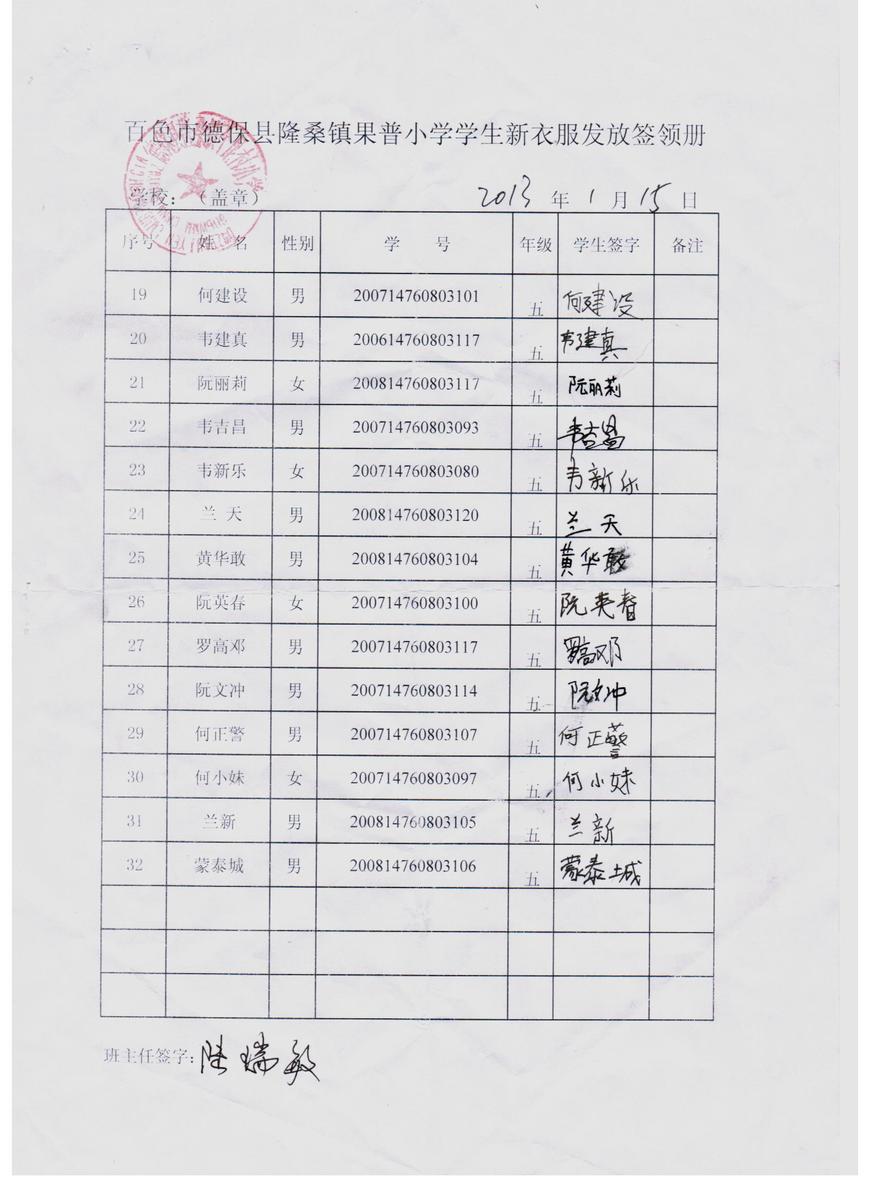 百色市德保县隆桑镇果普小学学生新衣服发放签领册
学校：（盖章） 2013 年 1 月 15 日
序号 姓 名 性别 学 号 年级 学生签字 备注
19 何建设 男 200714760803101 五 何建设
20 韦建真 男 200614760803117 五 韦建真
21 阮丽莉 女 200814760803117 五 阮丽莉
22 韦吉昌 男 200714760803093 五 韦吉昌
23 韦新乐 女 200714760803080 五 韦新乐
24 兰 天 男 200814760803120 五 兰天
25 黄华敢 男 200814760803104 五 黄华敢
26 阮英春 女 200714760803100 五 阮英春
27 罗高邓 男 200714760803117 五 罗高邓
28 阮文冲 男 200714760803114 五 阮文冲
29 何正警 男 200714760803107 五 何正警
30 何小妹 女 200714760803097 五 何小妹
31 兰新 男 200814760803105 五 兰新
32 蒙泰城 男 200814760803106 五 蒙泰城
班主任签字：陆瑞敏